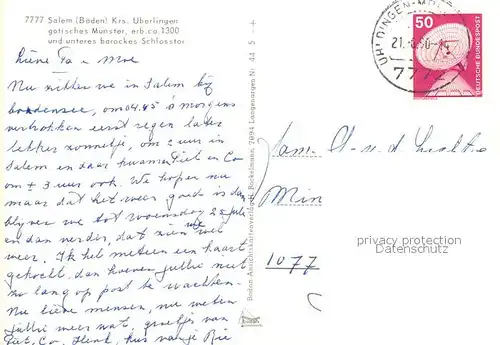 7777 Salem (Baden) Krs. Überlingen
gotisches Münster, erb. ca. 1300
und unteres barockes Schlosstor
Lieve Pa en Moe
Nu zitten we in Salem bij
bodensee, om 04.45 's morgens
vertrokken eerst regen later
lekker zonnetje, om 2 uur in
Salem en daar kwamen Piet en Co
om ± 3 uur ook. We hopen nu
maar dat het weer goed is dan
blijven we tot woensdag 25 juli
en dan verder, dat zien we wel
weer. Ik heb meteen een kaart
gekocht, dan hoeven jullie niet
zo lang op post te wachten.
Nu lieve mensen, nu weten
jullie weer wat, groetjes van
Piet, Co, Henk, kus van je Rie
Bodan Ansichtskartenverlag Bockelmann, 7994 Langenargen Nr. 44 5
UHLDINGEN-M
7772
50
DEUTSCHE BUNDESPOST
Fam.
1077
privacy protection
Datenschutz